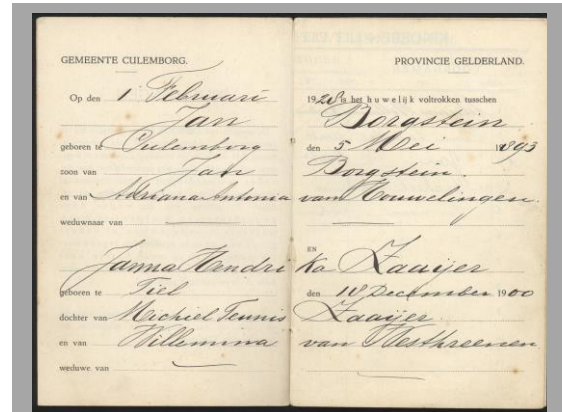 GEMEENTE CULEMBORG. PROVINCIE GELDERLAND.
Op den 1 Februari 1928 is het huwelijk voltrokken tusschen
Jan Borgstein
geboren te Culemborg den 5 Mei 1893
zoon van Jan Borgstein
en van Adriana Antonia van Houwelingen.
weduwnaar van
EN
Janna Hendrika Zaaijer
geboren te Tiel den 18 December 1900
dochter van Michiel Teunis Zaaijer
en van Willemina van Westhreenen
weduwe van